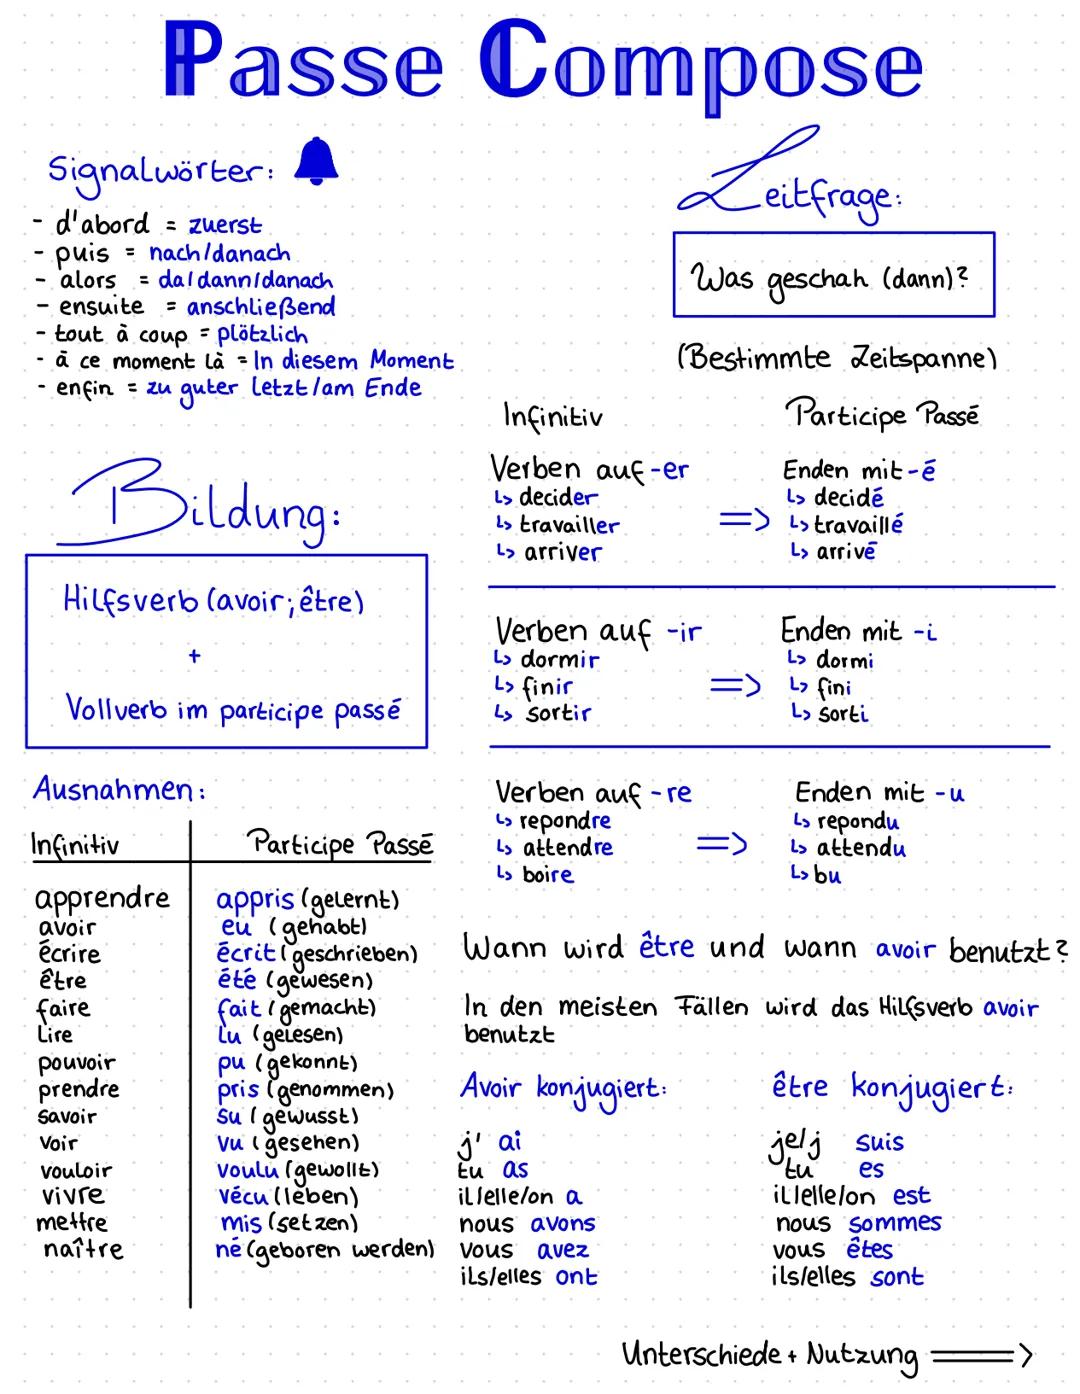 Passe Compose
Signalwörter:
- d'abord = zuerst
- puis = nach/danach
- alors = da/dann/danach
- ensuite = anschließend
- tout à coup = plötzlich
- à ce moment là = In diesem Moment
- enfin = zu guter letzt/am Ende
Leitfrage:
Was geschah (dann)?
(Bestimmte Zeitspanne)
Bildung:
Hilfsverb (avoir; être)
+
Vollverb im participe passé
Infinitiv Participe Passé
Verben auf -er Enden mit -é
↳ decider ↳ decidé
↳ travailler => ↳ travaillé
↳ arriver ↳ arrivé
Verben auf -ir Enden mit -i
↳ dormir ↳ dormi
↳ finir => ↳ fini
↳ sortir ↳ sorti
Verben auf -re Enden mit -u
↳ repondre ↳ repondu
↳ attendre => ↳ attendu
↳ boire ↳ bu
Ausnahmen:
Infinitiv Participe Passé
apprendre appris (gelernt)
avoir eu (gehabt)
écrire écrit (geschrieben)
être été (gewesen)
faire fait (gemacht)
lire lu (gelesen)
pouvoir pu (gekonnt)
prendre pris (genommen)
savoir su (gewusst)
voir vu (gesehen)
vouloir voulu (gewollt)
vivre vécu (leben)
mettre mis (setzen)
naître né (geboren werden)
Wann wird être und wann avoir benutzt?
In den meisten Fällen wird das Hilfsverb avoir
benutzt
Avoir konjugiert: être konjugiert:
j' ai je/j suis
tu as tu es
il/elle/on a il/elle/on est
nous avons nous sommes
vous avez vous êtes
ils/elles ont ils/elles sont
Unterschiede + Nutzung =>